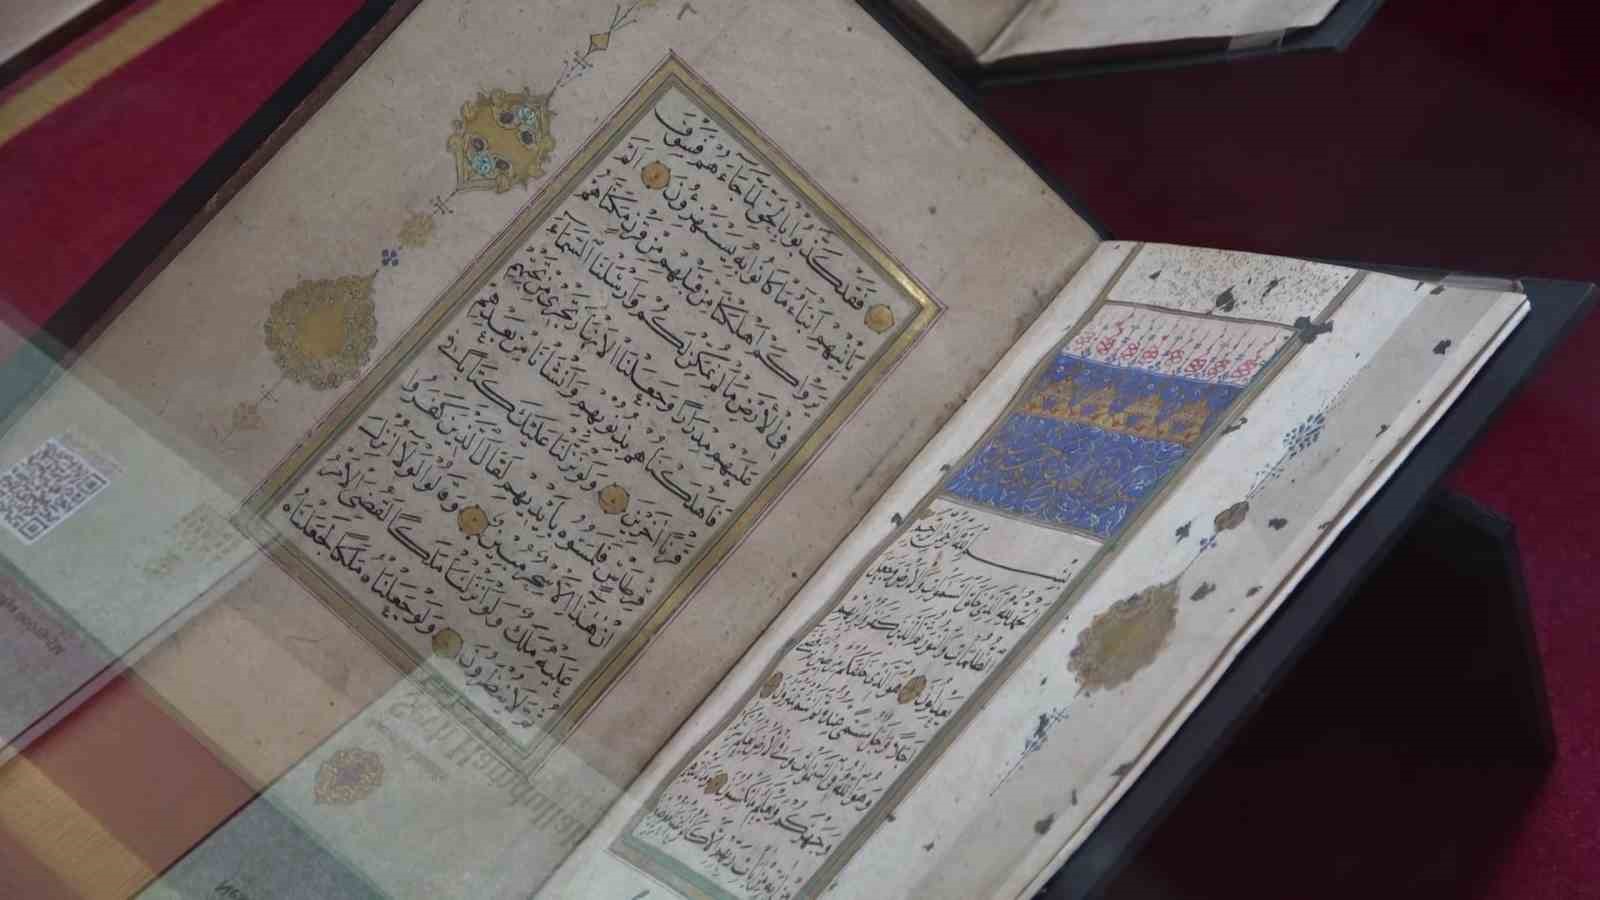 بِسْمِ اللهِ الرَّحْمٰنِ الرَّحِيمِ
اَلْحَمْدُ لِلّٰهِ الَّذِى خَلَقَ السَّمٰوَاتِ وَالْاَرْضَ وَجَعَلَ
الظُّلُمَاتِ وَالنُّورَ ثُمَّ الَّذِينَ كَفَرُوا بِرَبِّهِمْ
يَعْدِلُونَ هُوَ الَّذِى خَلَقَكُمْ مِنْ طِينٍ ثُمَّ قَضٰى
اَجَلًا وَاَجَلٌ مُسَمًّى عِنْدَهُ ثُمَّ اَنْتُمْ تَمْتَرُونَ
وَهُوَ اللهُ فِى السَّمٰوَاتِ وَفِى الْاَرْضِ يَعْلَمُ سِرَّكُمْ
وَجَهْرَكُمْ وَيَعْلَمُ مَا تَكْسِبُونَ وَمَا تَأْتِيهِمْ
مِنْ اٰيَةٍ مِنْ اٰيَاتِ رَبِّهِمْ اِلَّا كَانُوا
فَقَدْ كَذَّبُوا بِالْحَقِّ لَمَّا جَاءَهُمْ فَسَوْفَ
يَأْتِيهِمْ اَنْبَاءُ مَا كَانُوا بِهِ يَسْتَهْزِءُونَ اَلَمْ
يَرَوْا كَمْ اَهْلَكْنَا مِنْ قَبْلِهِمْ مِنْ قَرْنٍ مَكَّنَّاهُمْ
فِى الْاَرْضِ مَا لَمْ نُمَكِّنْ لَكُمْ وَاَرْسَلْنَا السَّمَاءَ
عَلَيْهِمْ مِدْرَارًا وَجَعَلْنَا الْاَنْهَارَ تَجْرِى مِنْ تَحْتِهِمْ
فَاَهْلَكْنَاهُمْ بِذُنُوبِهِمْ وَاَنْشَأْنَا مِنْ بَعْدِهِمْ
قَرْنًا اٰخَرِينَ وَلَوْ نَزَّلْنَا عَلَيْكَ كِتَابًا فِى
قِرْطَاسٍ فَلَمَسُوهُ بِاَيْدِيهِمْ لَقَالَ الَّذِينَ كَفَرُوا
اِنْ هٰذَا اِلَّا سِحْرٌ مُبِينٌ وَقَالُوا لَوْلَا اُنْزِلَ
عَلَيْهِ مَلَكٌ وَلَوْ اَنْزَلْنَا مَلَكًا لَقُضِىَ الْاَمْرُ
ثُمَّ لَا يُنْظَرُونَ وَلَوْ جَعَلْنَاهُ مَلَكًا لَجَعَلْنَاهُ
Şeyh Hamdullah